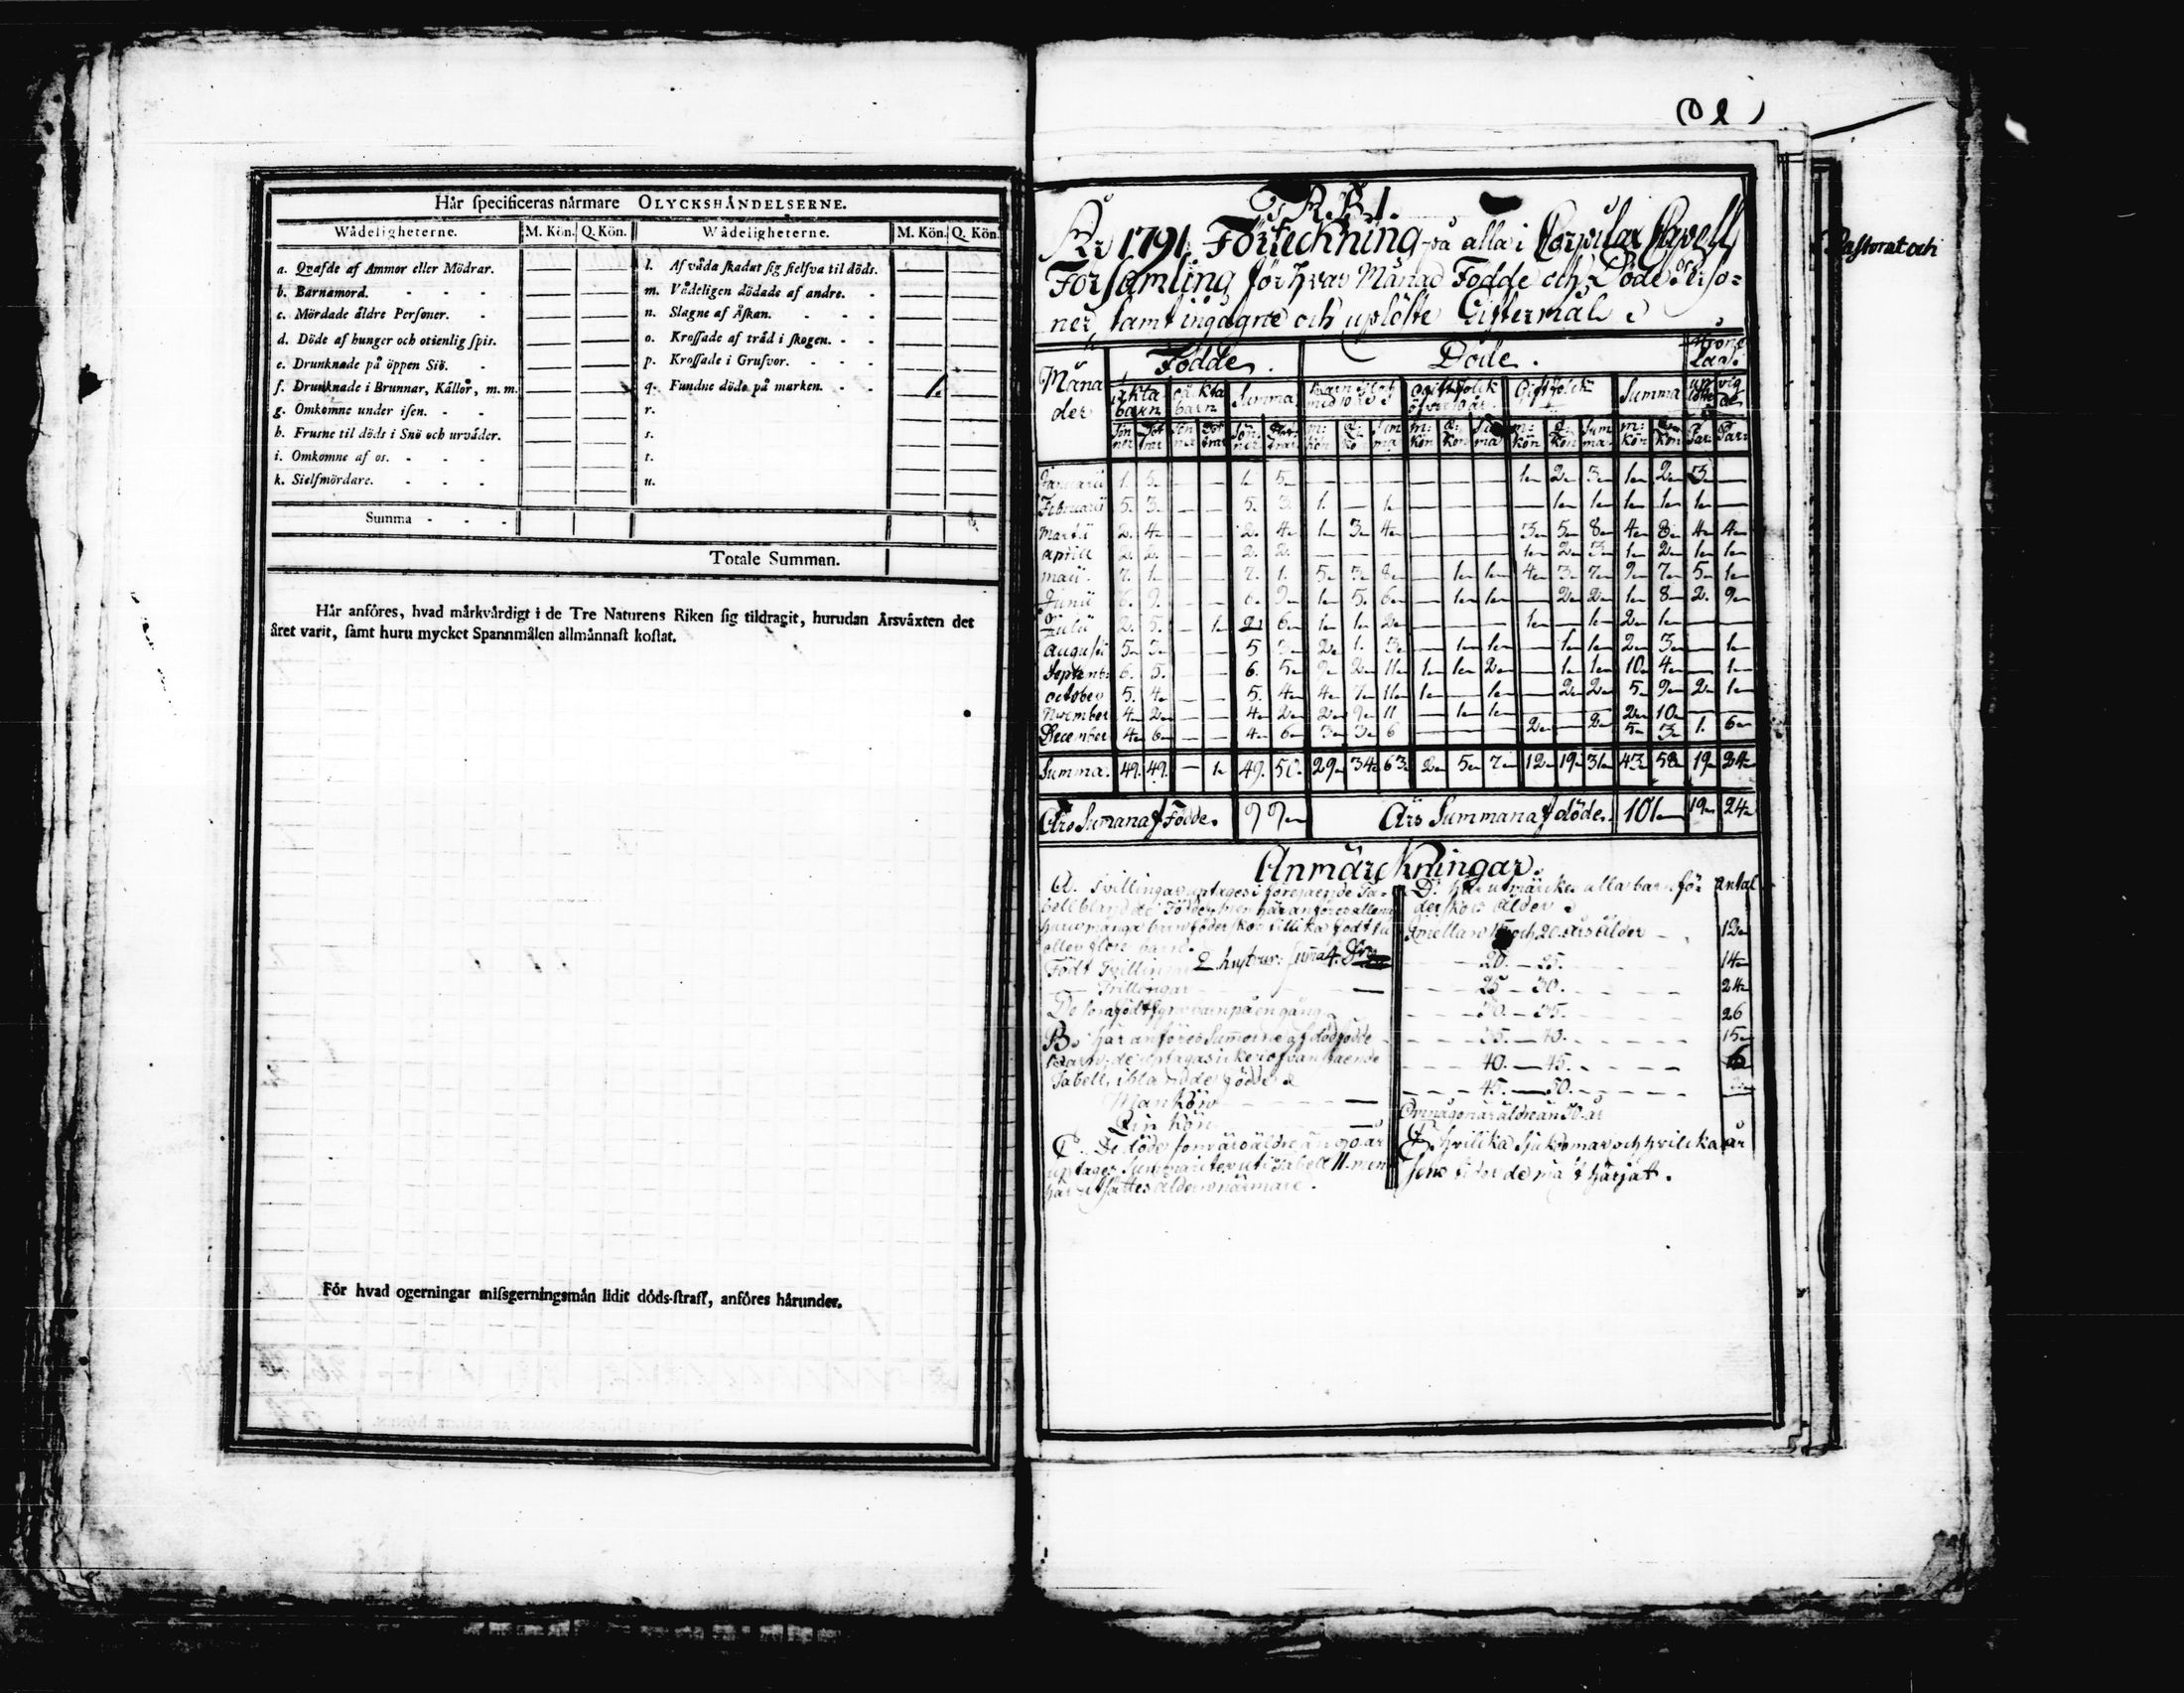 Här specificeras närmare OLYCKSHÄNDELSERNE.
Wådeligheterne. M. Kön. Q. Kön. Wådeligheterne. M. Kön. Q. Kön.
a. Qvafde af Ammor eller Mödrar. — — l. Af våda skadat sig sielfva til döds. — —
b. Barnamord. — — m. Vådeligen dödade af andre. — —
c. Mördade äldre Personer. — — n. Slagne af Åskan. — —
d. Döde af hunger och otienlig spis. — — o. Krossade af träd i skogen. — —
e. Drunknade på öppen Siö. — — p. Krossade i Grufvor. — —
f. Drunknade i Brunnar, Källor, m. m. — — q. Fundne döde på marken. 1. —
g. Omkomne under isen. — — r. — —
h. Frusne til döds i Snö och urväder. — — s. — —
i. Omkomne af os. — — t. — —
k. Sielfmördare. — — u. — —
Summa
Totale Summan.
Här anföres, hvad märkvärdigt i de Tre Naturens Riken sig tildragit, hurudan Årsväxten det
året varit, samt huru mycket Spannmålen allmännast kostat.
För hvad ogerningar missgerningsmän lidit döds-straff, anföres härunder.
År 1791 Förteckning på alla i Corpilax Capell
Församling för hvar Månad Födde och Döde Perso=
ner, samt ingågne och uplöste Giftermål
Pastorat och
Måna
der
Födde. Döde.
äkta
barn oäkta
barn Summa Giftfolck Summa
Januarii 1. 5. — — 1. 5. — — — — — — 1 2 3 1 2 3 —
Februarii 5. 3. — — 5. 3. 1. — 1 — — — — 1 1 1 1 1 —
Martii 2. 4 — — 2. 4 1 3 4 — — — 3 5 8 4 8 4 4
Aprill 2. 2. — — 2. 2. — — — — — — 1 2 3 1 2 1 1
Maii. 7. 1 — — 7. 1. 5 3 8 — 1 1 4 3 7 9 7 5 1
Junii 6. 9. — — 6. 9 1 5. 6 — 1 1 — 2 2 1 8 2. 9
Julii 2. 5. — 1 2 6 1 1 2 — — — 1 — 1 2 1 — —
Augusti 5 3 — — 5 3 2 1. 3 — 1 1 — 1 1 2 3 — 1
Septemb: 6. 5. — — 6. 5 9 2 11 1 1 2 — 1 1 10 4 — 1
October 5. 4 — — 5. 4 4 7 11 1 — 1 — 2 2 5 9 2 1
November 4 2 — — 4 2 2 9 11 — 1 1 — — — 2 10 — —
December 4 6 — — 4 6 3 3 6 — — — 2 — 2 5 3 1. 6
Summa. 49. 49. — 1 49. 50. 29 34 63 2 5 7 12 19 31 43 58 19 24
Års Summan af Födde. 99 Års Summan af döde. 101 19 24
Anmärckningar.
A. Tvillingar uptages i föregående Ta=
bell bland de Födde, men här anföres allena
huru många barnföderskor tillika födt tu
eller flere barn.
Födt Tvillingar 2 hustrur: Suma 4.
— Trillingar — —
De som födt fyra barn på en gång
B. Här anföres Summorne af dödfödde
Barn; de uptagas icke i ofvanstående
Tabell, ibland de födde
Mankön —
Qin kön —
C. De döde som varo äldre än 90 år
uptages Summariter uti Tabell II. men
här utsättes åldern närmare.
D. Här utmärckes alla barnför
derskors ålder antal
Emellan 15 och 20. års ålder 12
20. — 25. 14
25 — 30. 24
30. — 35. 26
35. — 40. 15
40. — 45. 6
45. — 50.
Om någon är äldre än 50. år
E. Hvilcka Siukdomar och hvilcka år
sens tider de mäst härjat.